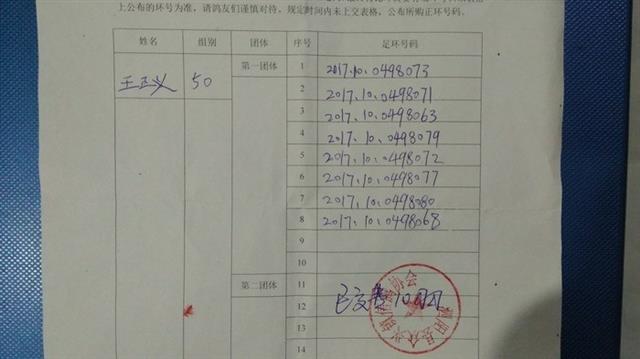 上公布的环号为准，请鸽友们谨慎对待，规定时间内未上交表格，公布所购正环号码。
姓名 组别 团体 序号 足环号码
王正义 50 第一团体 1 2017.10.0498073
2 2017.10.0498071
3 2017.10.0498063
4 2017.10.0498079
5 2017.10.0498072
6 2017.10.0498077
7 2017.10.0498080
8 2017.10.0498068
9
10
第二团体 11
12 已交费100
13
14